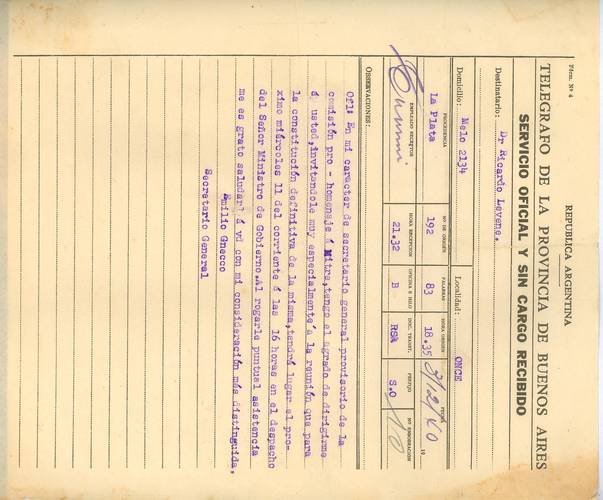 Fórm. Nº 4
REPUBLICA ARGENTINA
TELEGRAFO DE LA PROVINCIA DE BUENOS AIRES
SERVICIO OFICIAL Y SIN CARGO RECIBIDO
Destinatario: Dr Ricardo Levene.
Domicilio: Melo 2134 Localidad: ONCE
PROCEDENCIA Nº DE ORIGEN PALABRAS HORA ORIGEN FECHA
La Plata 192 83 18.35 9/12/40 19
EMPLEADO RECEPTOR HORA RECEPCION OFICINA E HILO INDC. TRANST. PREFIJO Nº RENOBACION
21.32 B RSA S.O 10
OBSERVACIONES:
Ofl: En mi caracter de secretario general provisorio de la
comisión pro - homenaje á Mitre,tengo el agrado de dirigirme
á usted,invitandole muy especialmente a la reunión que para
la constitución definitiva de la misma,tendrá lugar el pro-
ximo miércoles 11 del corriente á las 16 horas en el despacho
del Señor Ministro de Gobierno.Al rogarle puntual asistencia
me es grato saludarl á vd con mi consideración más distinguida.
Emilio Checco
Secretario General